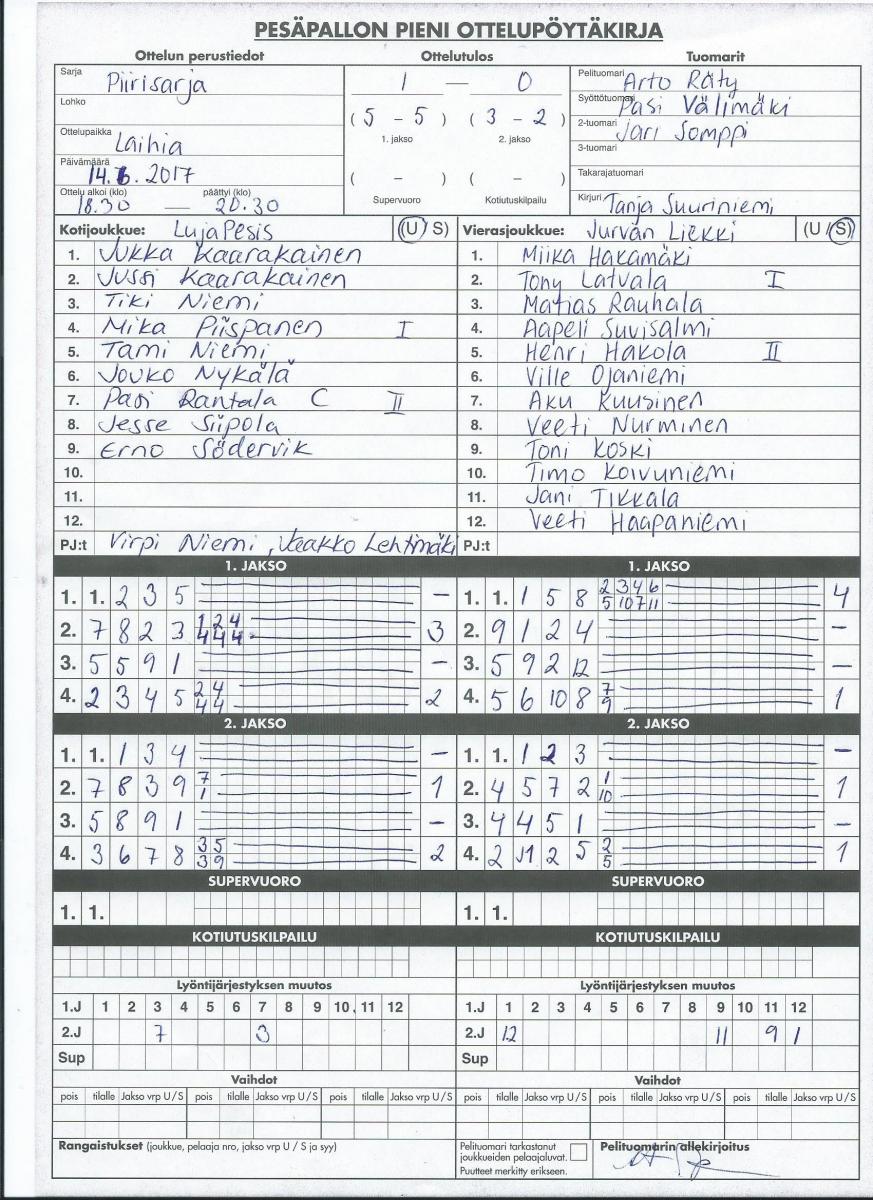 PESÄPALLON PIENI OTTELUPÖYTÄKIRJA
Ottelun perustiedot Ottelutulos Tuomarit
Sarja Piirisarja
Lohko
Ottelupaikka Laihia
Päivämäärä 14.6.2017
Ottelu alkoi (klo) päättyi (klo)
18.30 — 20.30
1 — 0
( 5 - 5 ) ( 3 - 2 )
1. jakso 2. jakso
( - ) ( - )
Supervuoro Kotiutuskilpailu
Pelituomari Arto Räty
Syöttötuomari Pasi Välimäki
2-tuomari Jari Somppi
3-tuomari
Takarajatuomari
Kirjuri Tanja Suuriniemi
Kotijoukkue: LujaPesis (U / S) Vierasjoukkue: Jurvan Liekki (U / S)
1. Jukka Kaarakainen 1. Miika Hakamäki
2. Jussi Kaarakainen 2. Tony Latvala I
3. Tiki Niemi 3. Matias Rauhala
4. Mika Piispanen I 4. Aapeli Suvisalmi
5. Tami Niemi 5. Henri Hakola II
6. Jouko Nykälä 6. Ville Ojaniemi
7. Pasi Rantala C II 7. Aku Kuusinen
8. Jesse Siipola 8. Veeti Nurminen
9. Erno Södervik 9. Toni Koski
10. 10. Timo Koivuniemi
11. 11. Jani Tikkala
12. 12. Veeti Haapaniemi
PJ:t Virpi Niemi, Jaakko Lehtimäki PJ:t
1. JAKSO 1. JAKSO
1. 1. 2 3 5 – 1. 1. 1 5 8 2 3 4 6 5 10 7 11 4
2. 7 8 2 3 1 2 4 4 4 4 3 2. 9 1 2 4 –
3. 5 5 9 1 – 3. 5 9 2 12 –
4. 2 3 4 5 2 4 4 4 2 4. 5 6 10 8 7 9 1
2. JAKSO 2. JAKSO
1. 1. 1 3 4 – 1. 1. 1 2 3 –
2. 7 8 3 9 7 1 1 2. 4 5 7 2 1 10 1
3. 5 8 9 1 – 3. 4 4 5 1 –
4. 3 6 7 8 3 5 3 9 2 4. 2 11 2 5 2 5 1
SUPERVUORO SUPERVUORO
1. 1. 1. 1.
KOTIUTUSKILPAILU KOTIUTUSKILPAILU
Lyöntijärjestyksen muutos Lyöntijärjestyksen muutos
1.J 1 2 3 4 5 6 7 8 9 10 11 12 1.J 1 2 3 4 5 6 7 8 9 10 11 12
2.J 7 3 2.J 12 11 9 1
Sup Sup
Vaihdot Vaihdot
pois tilalle Jakso vrp U / S pois tilalle Jakso vrp U / S pois tilalle Jakso vrp U / S pois tilalle Jakso vrp U / S pois tilalle Jakso vrp U / S pois tilalle Jakso vrp U / S
Rangaistukset (joukkue, pelaaja nro, jakso vrp U / S ja syy)
Pelituomari tarkastanut
joukkueiden pelaajaluvat.
Puutteet merkitty erikseen.
Pelituomarin allekirjoitus